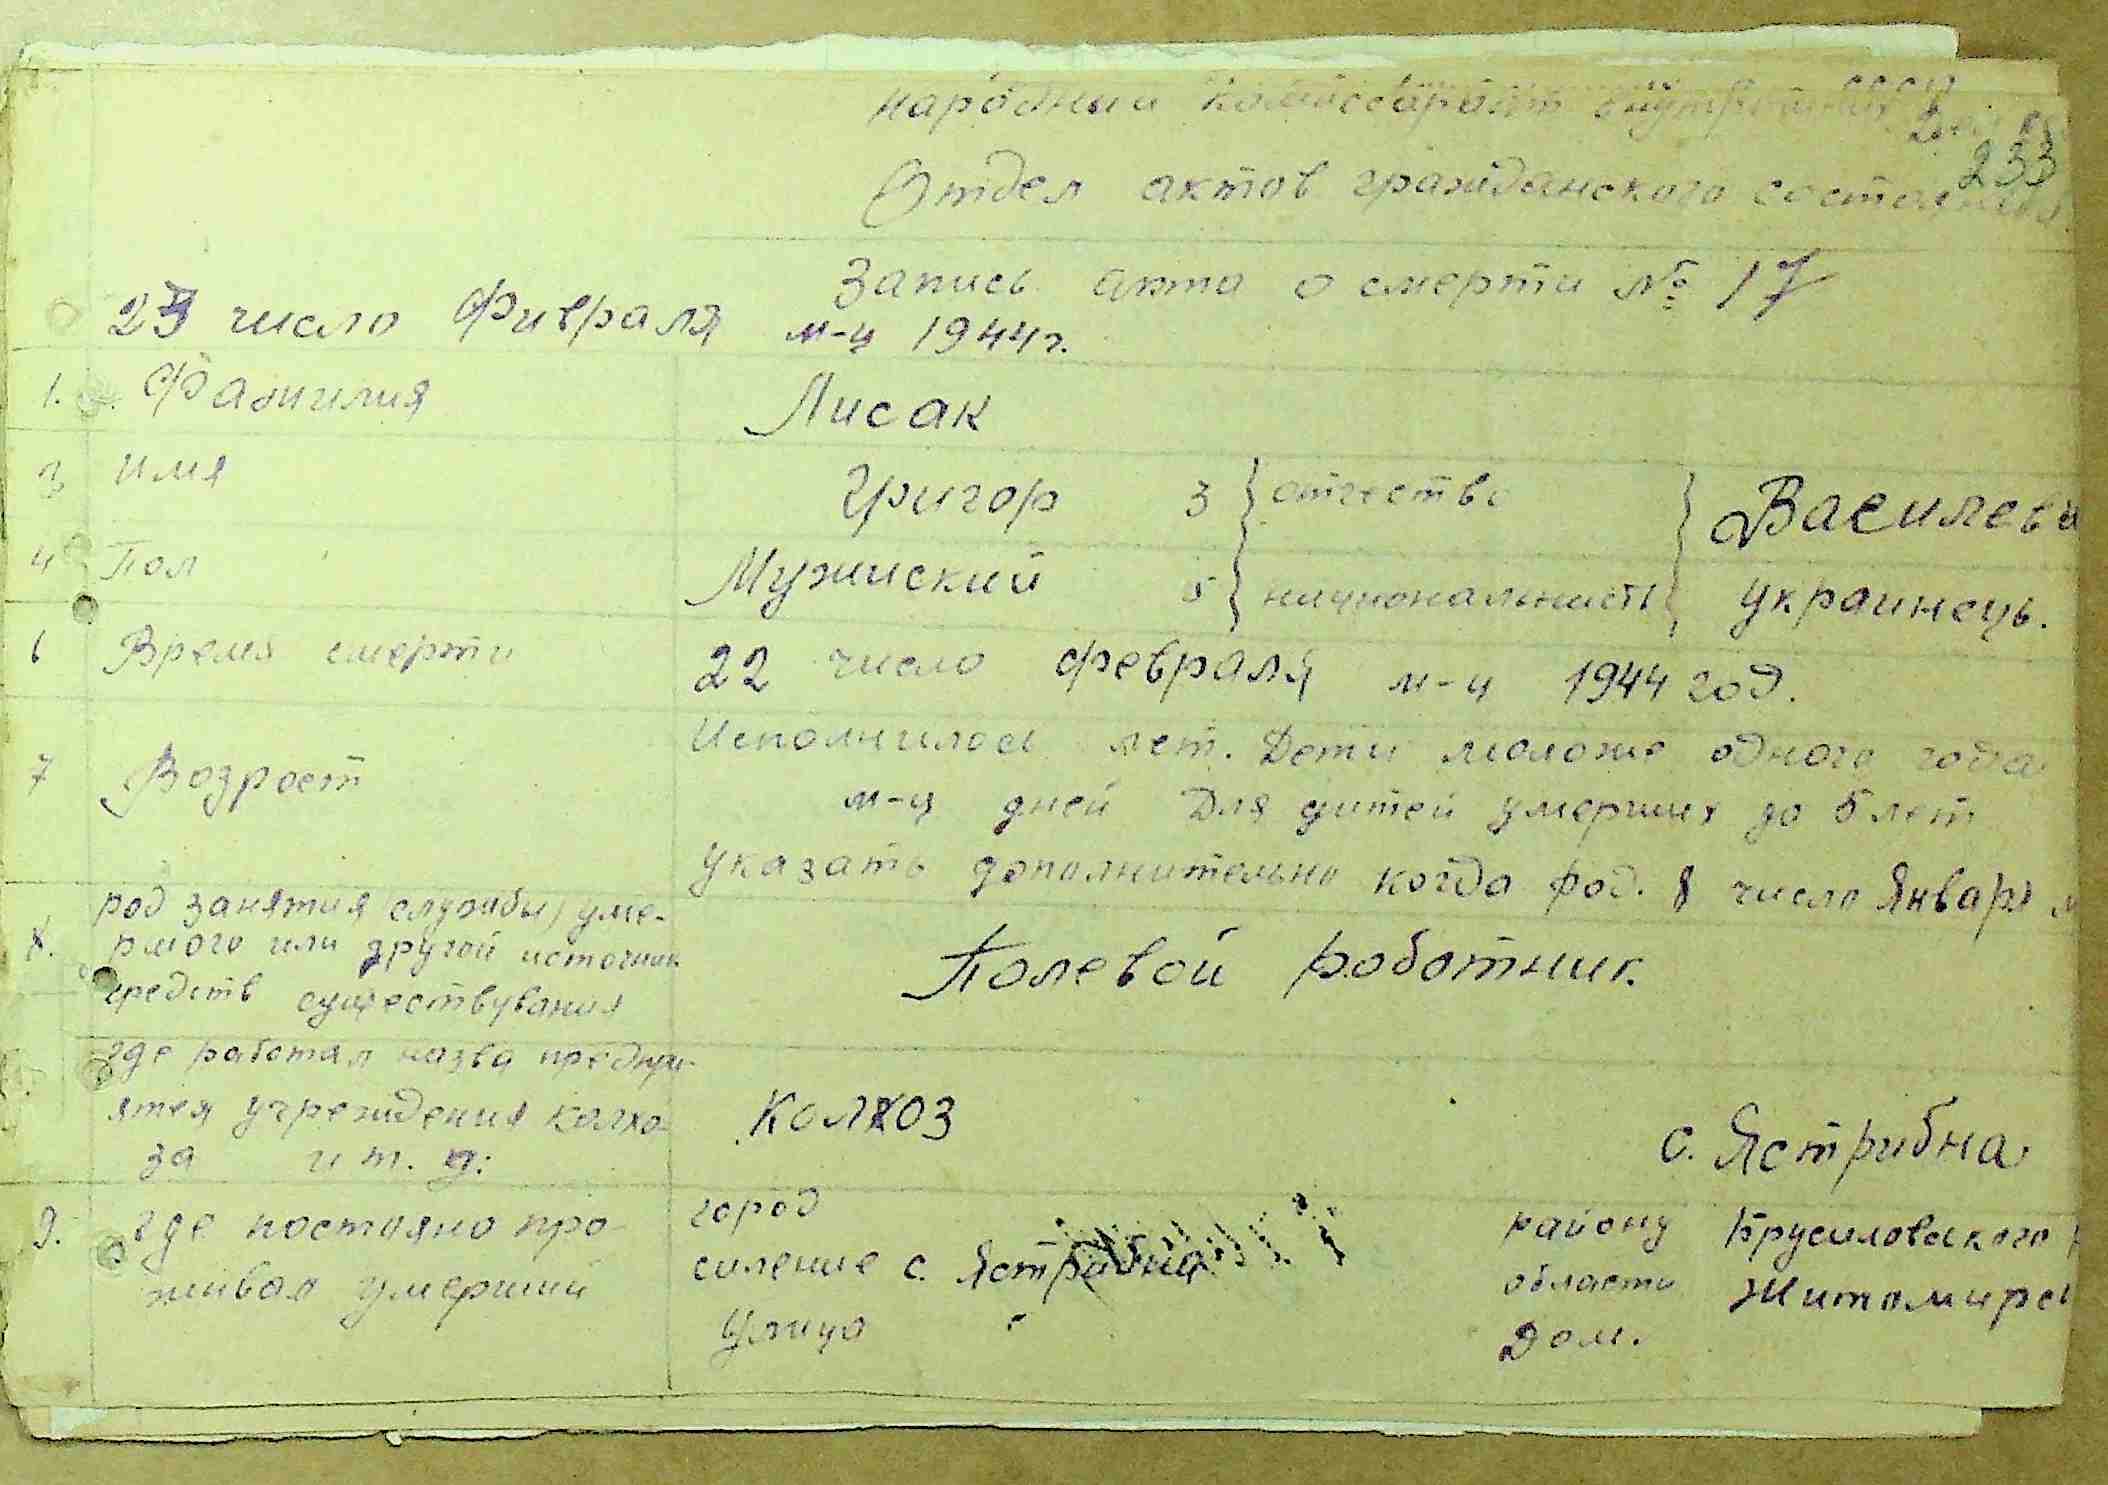 СССР
народный комиссариат внутрених дел
233
Отдел актов гражданского состояния
Запись акта о смерти № 17
23 число Фивраля м-ц 1944г.
1. Фамилия Лисак
3 имя Григор 3 отчество Василеви
4 Пол Мужиский 5 нициональность украинець.
6 Время смерти 22 число февраля м-ц 1944 год.
7 Возрост Исполнилось лет. Дети моложе одного года
м-ц дней Для дитей умерших до 5 лет
указать дополнительно когда род. 8 число Январ м
8. род занятия (службы) уме-
рмого или другой источник
средств существувания Полевой роботник.
где работал назва предпри-
ятея учреждения колхо-
за и т. д: Колхоз с. Ястрибна
9. где постояно про-
живал умерший
город
силение с. Ястрибна
Улица
району Брусиловского р
области Житомирс
Дом.